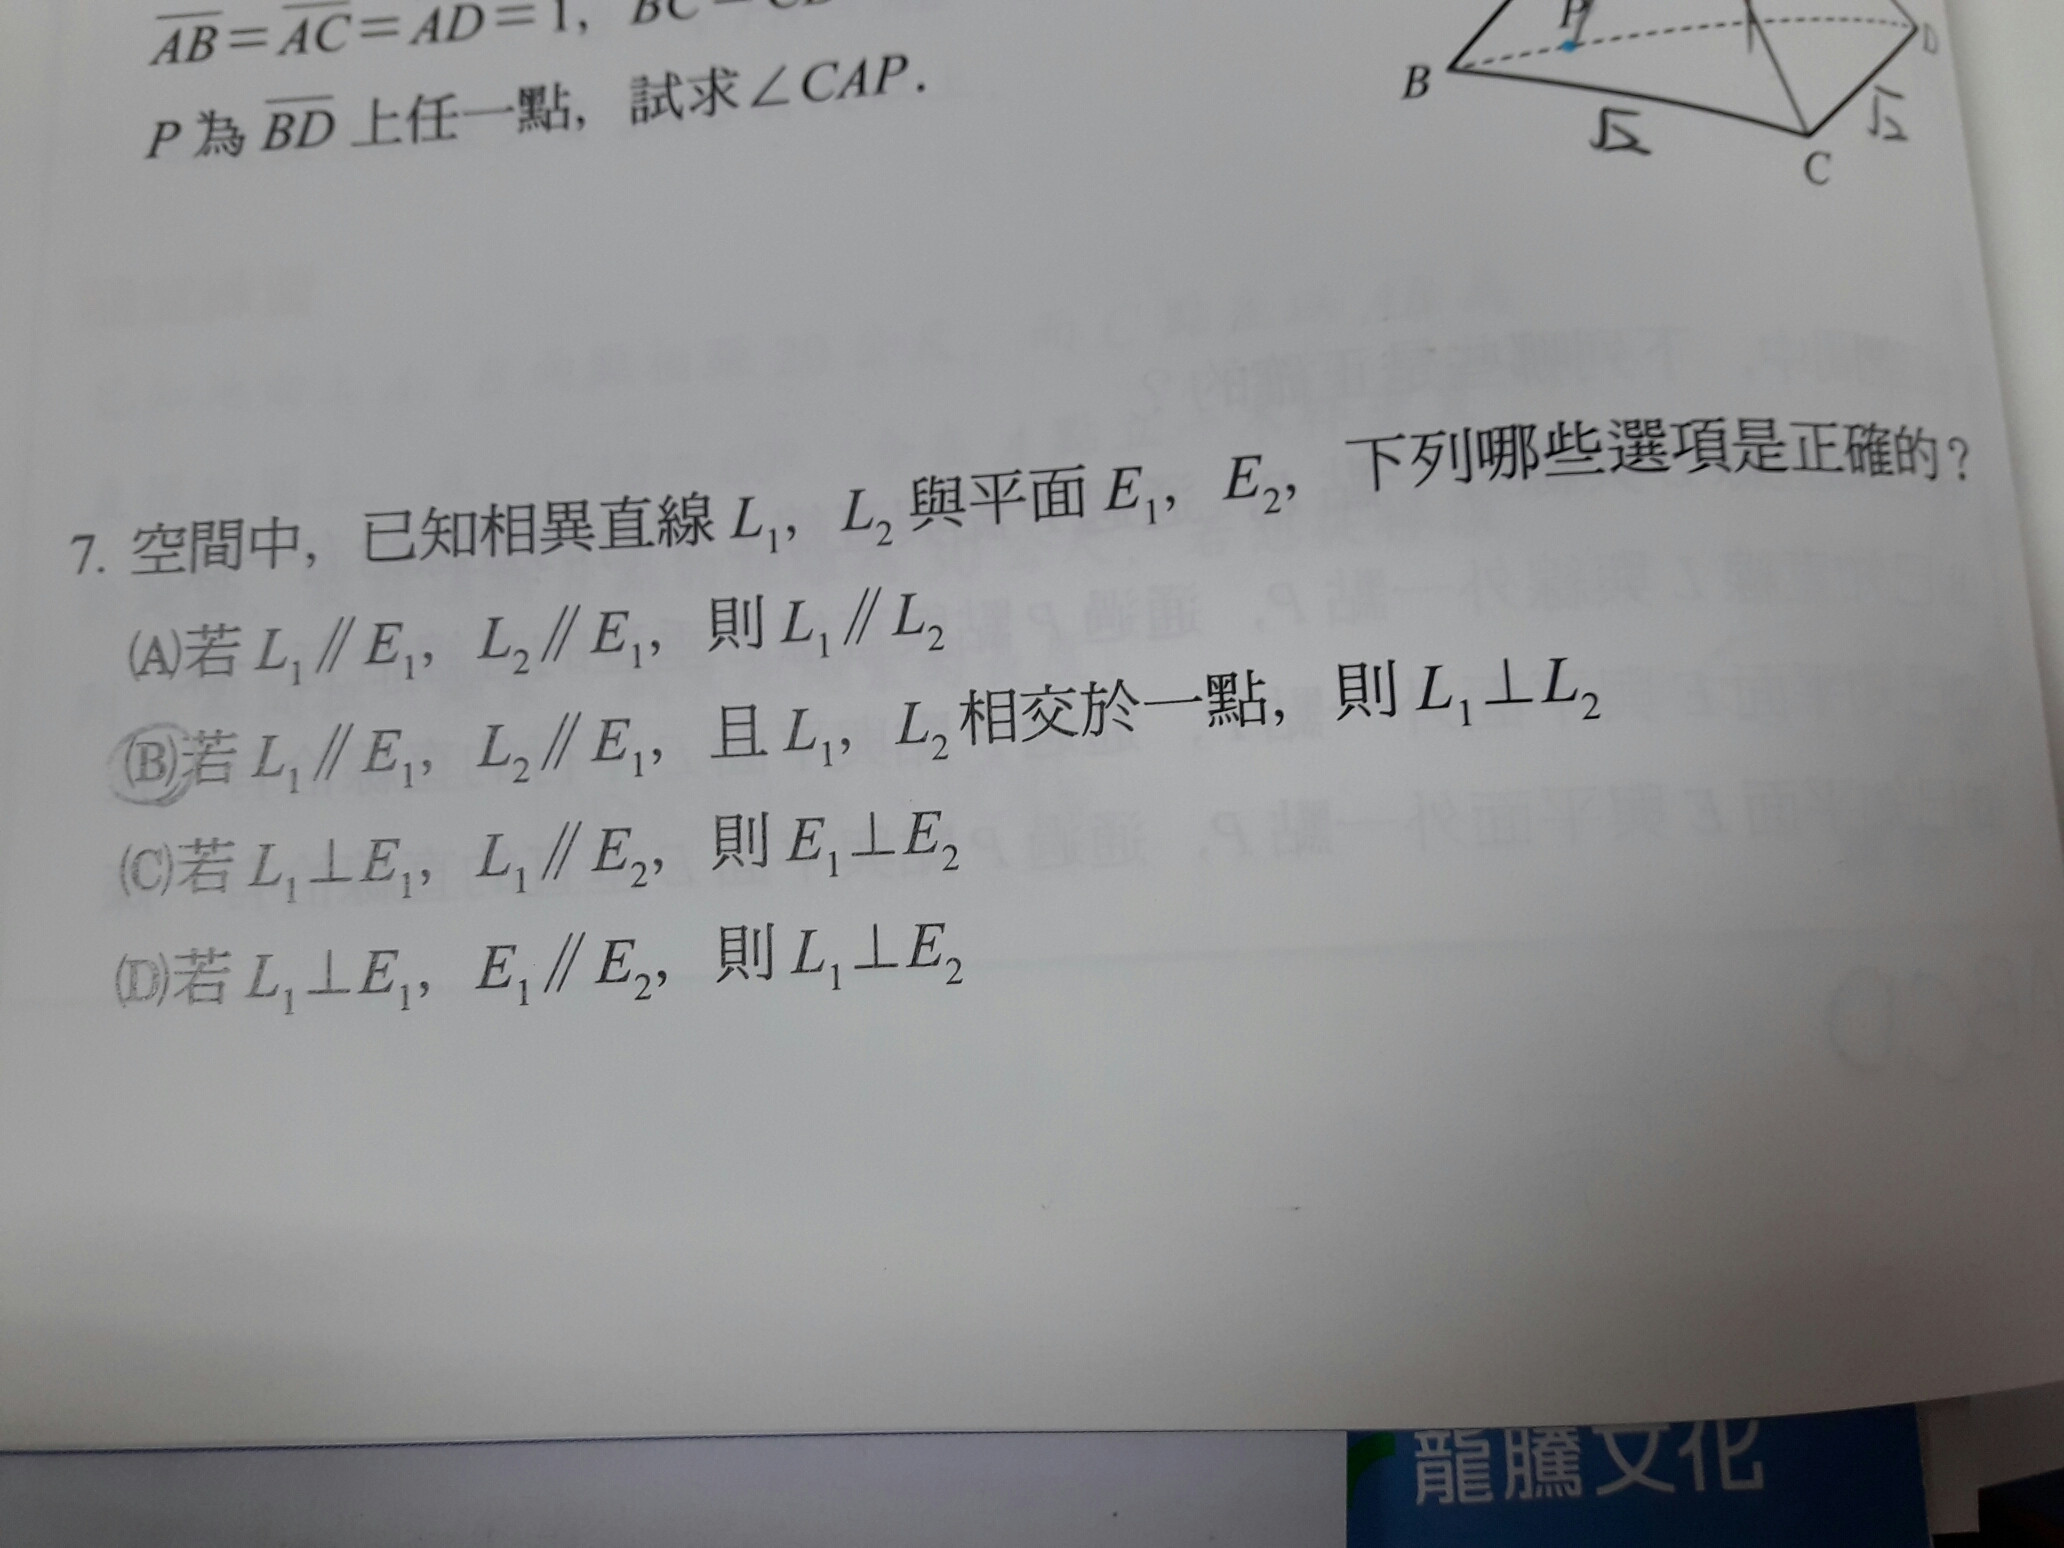 AB=AC=AD=1, BC=CD
P為BD上任一點, 試求∠CAP.
P
B
C
D
√2
√2
7. 空間中, 已知相異直線L₁, L₂與平面E₁, E₂, 下列哪些選項是正確的?
(A)若L₁∥E₁, L₂∥E₁, 則L₁∥L₂
(B)若L₁∥E₁, L₂∥E₁, 且L₁, L₂相交於一點, 則L₁⊥L₂
(C)若L₁⊥E₁, L₁∥E₂, 則E₁⊥E₂
(D)若L₁⊥E₁, E₁∥E₂, 則L₁⊥E₂
龍騰文化